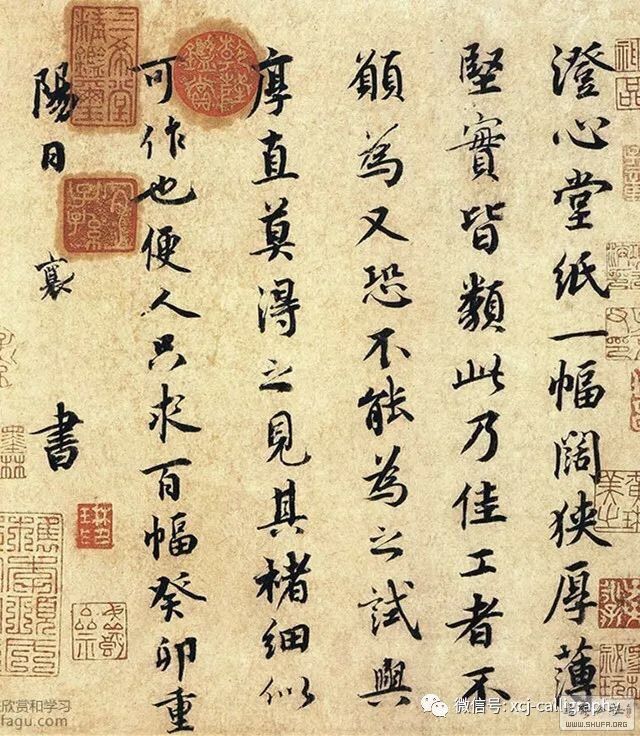 澄心堂紙一幅闊狹厚薄
堅實皆類此乃佳工者不
願為又恐不能為之試與
厚直莫得之見其楮細似
可作也便人只求百幅癸卯重
陽日 襄 書
三希堂精鑑璽
乾隆鑑賞
宜子孫
墨林
欣赏和学习
fagu.com
微信号: xcj-calligraphy
WWW.SHUFA.ORG